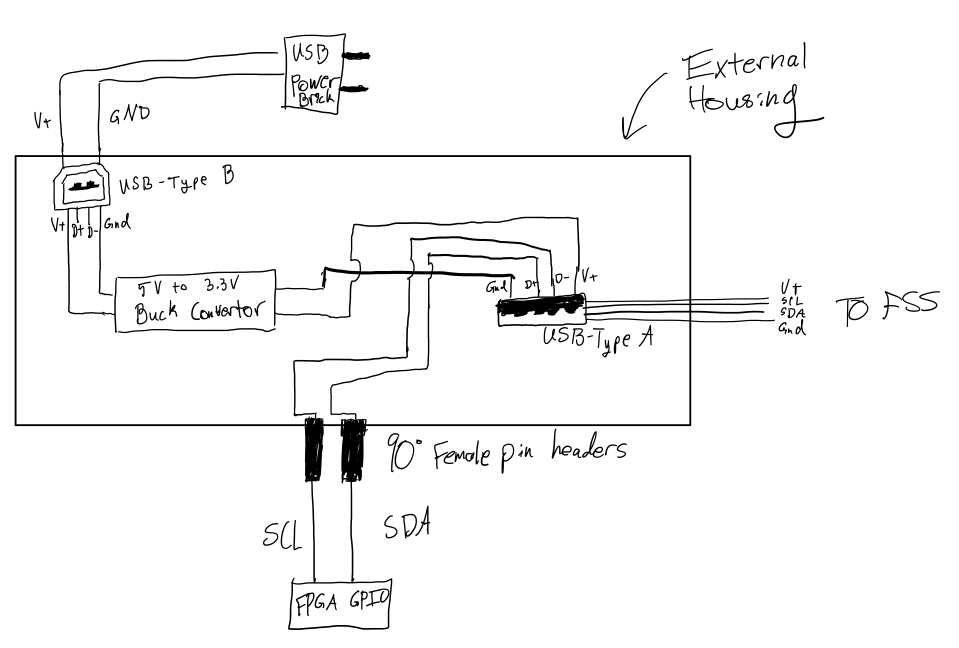 USB
Power
Brick
External
Housing
V+
GND
USB-Type B
V+ D+ D- Gnd
5V to 3.3V
Buck Convertor
Gnd D+ D- V+
USB-Type A
V+
SCL
SDA
Gnd
TO ASS
90° Female pin headers
SCL
SDA
FPGA GPIO